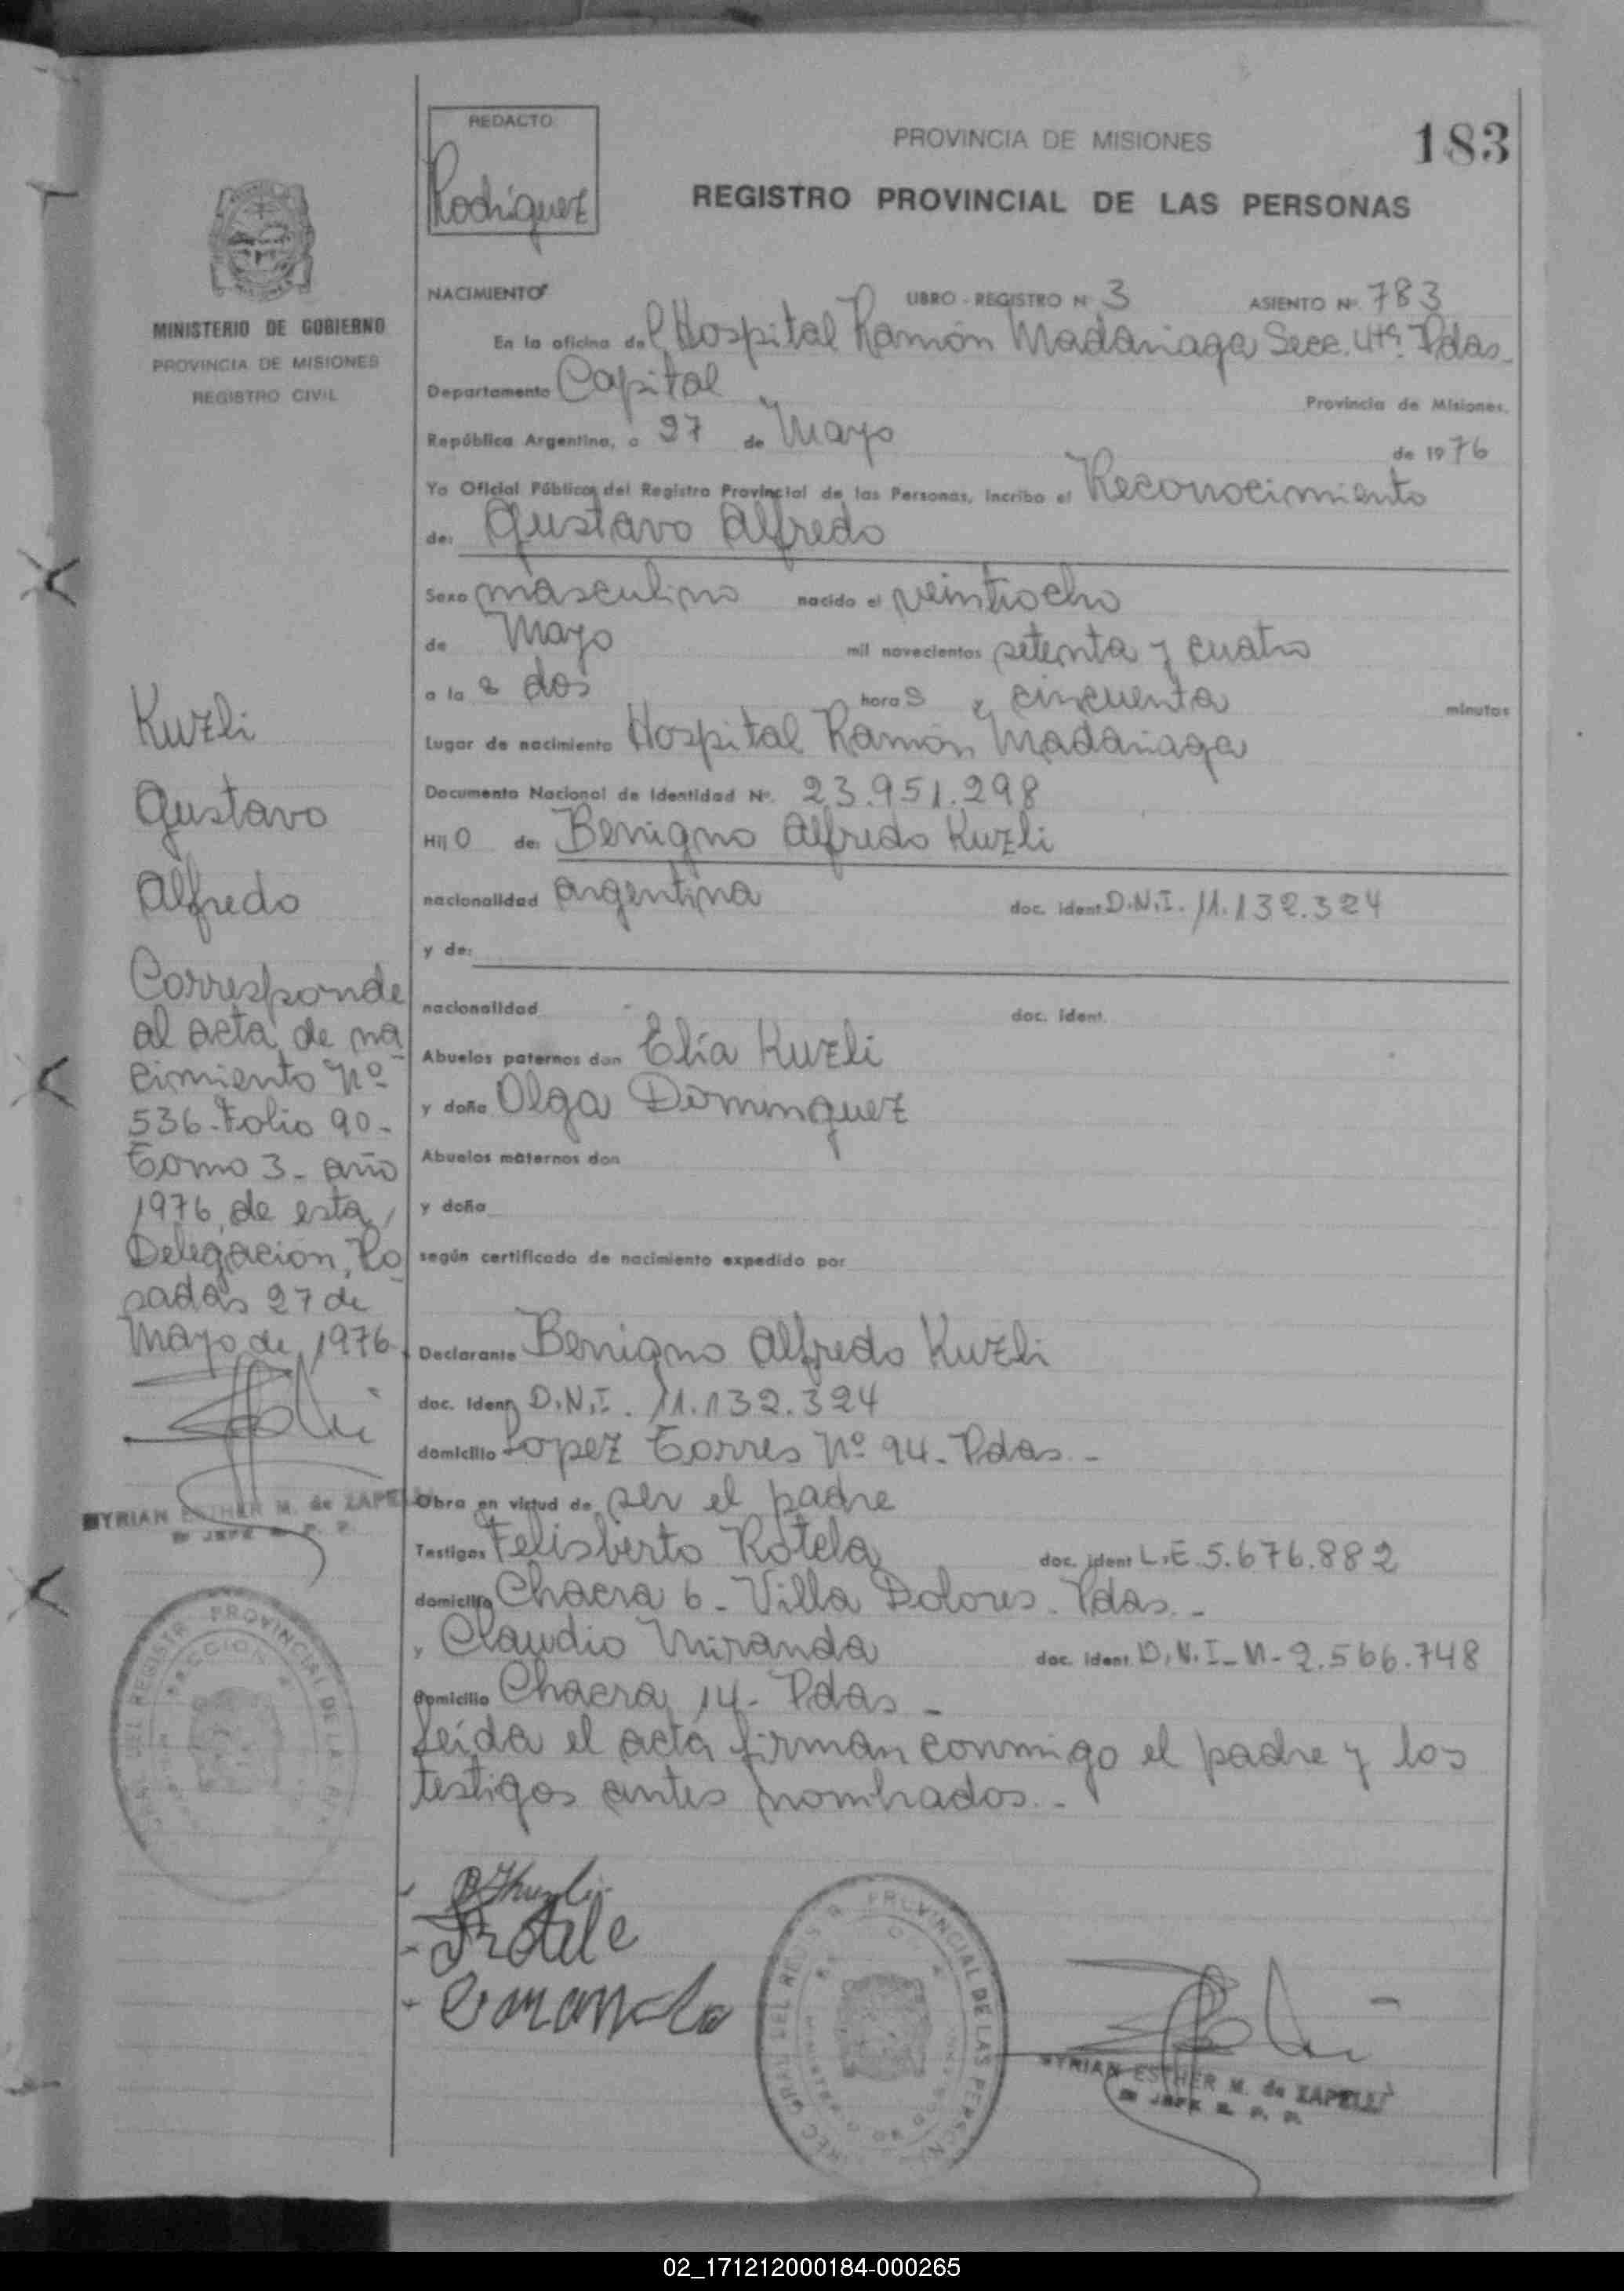 REDACTO
Rodriguez
PROVINCIA DE MISIONES
183
REGISTRO PROVINCIAL DE LAS PERSONAS
MINISTERIO DE GOBIERNO
PROVINCIA DE MISIONES
REGISTRO CIVIL
NACIMIENTO
LIBRO - REGISTRO Nº 3 ASIENTO Nº 783
En la oficina del Hospital Ramón Madariaga Secc. 4ta. Pdas.
Departamento Capital Provincia de Misiones.
República Argentina, a 27 de Mayo de 1976
Yo Oficial Público, del Registro Provincial de las Personas, inscribo el Reconocimiento
de: Gustavo Alfredo
Sexo masculino nacido el veintiocho
de Mayo mil novecientos setenta y cuatro
a la s dos hora s y cincuenta minutos
Lugar de nacimiento Hospital Ramón Madariaga
Documento Nacional de Identidad Nº. 23.951.298
Hij o de: Benigno Alfredo Kuzli
nacionalidad argentina doc. ident. D.N.I. 11.132.324
y de:
nacionalidad doc. ident.
Abuelos paternos don Elía Kuzli
y doña Olga Dominguez
Abuelos maternos don
y doña
según certificado de nacimiento expedido por
Declarante Benigno Alfredo Kuzli
doc. ident. D.N.I. 11.132.324
domicilio Lopez Torres Nº 94. Pdas. -
Obra en virtud de ser el padre
Testigos Felisberto Rotela doc. ident. L.E 5.676.882
domicilio Chacra 6 - Villa Dolores. Pdas. -
y Claudio Miranda doc. ident. D.N.I-M-2.566.748
domicilio Chacra 14 - Pdas -
Leída el acta firman conmigo el padre y los
testigos antes nombrados. -
Kuzli
Gustavo
Alfredo
Corresponde
al acta de na
cimiento Nº
536-Folio 90-
Tomo 3- año
1976, de esta
Delegación, Po
sadas 27 de
Mayo de 1976.
MYRIAN ESTHER M. de ZAPELLI
JEFE R. P. P.
PROVINCIAL DE LAS
SECCION 4
Rotela
PROVINCIAL DE LAS PERSONAS
MYRIAN ESTHER M. de ZAPELLI
JEFE R. P. P.
02_171212000184-000265